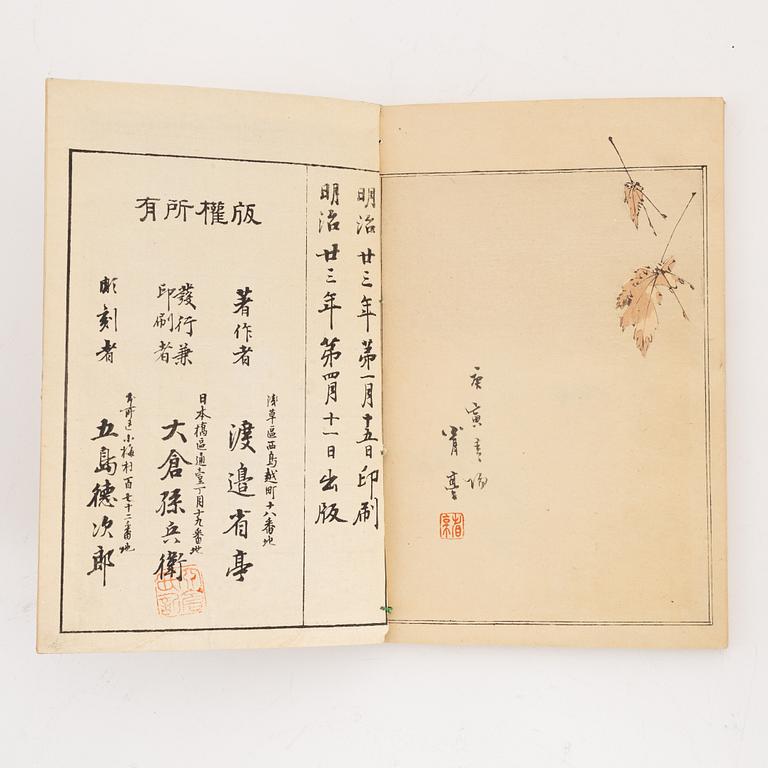 庚寅春日
省亭
省亭
明治廿三年第一月十五日印刷
明治廿三年第四月十一日出版
版權所有
著作者
淺草區西鳥越町十八番地
渡邉省亭
發行兼
印刷者
日本橋區通壹丁目十九番地
大倉孫兵衛
彫刻者
本所區小梅村百七十二番地
五島德次郎